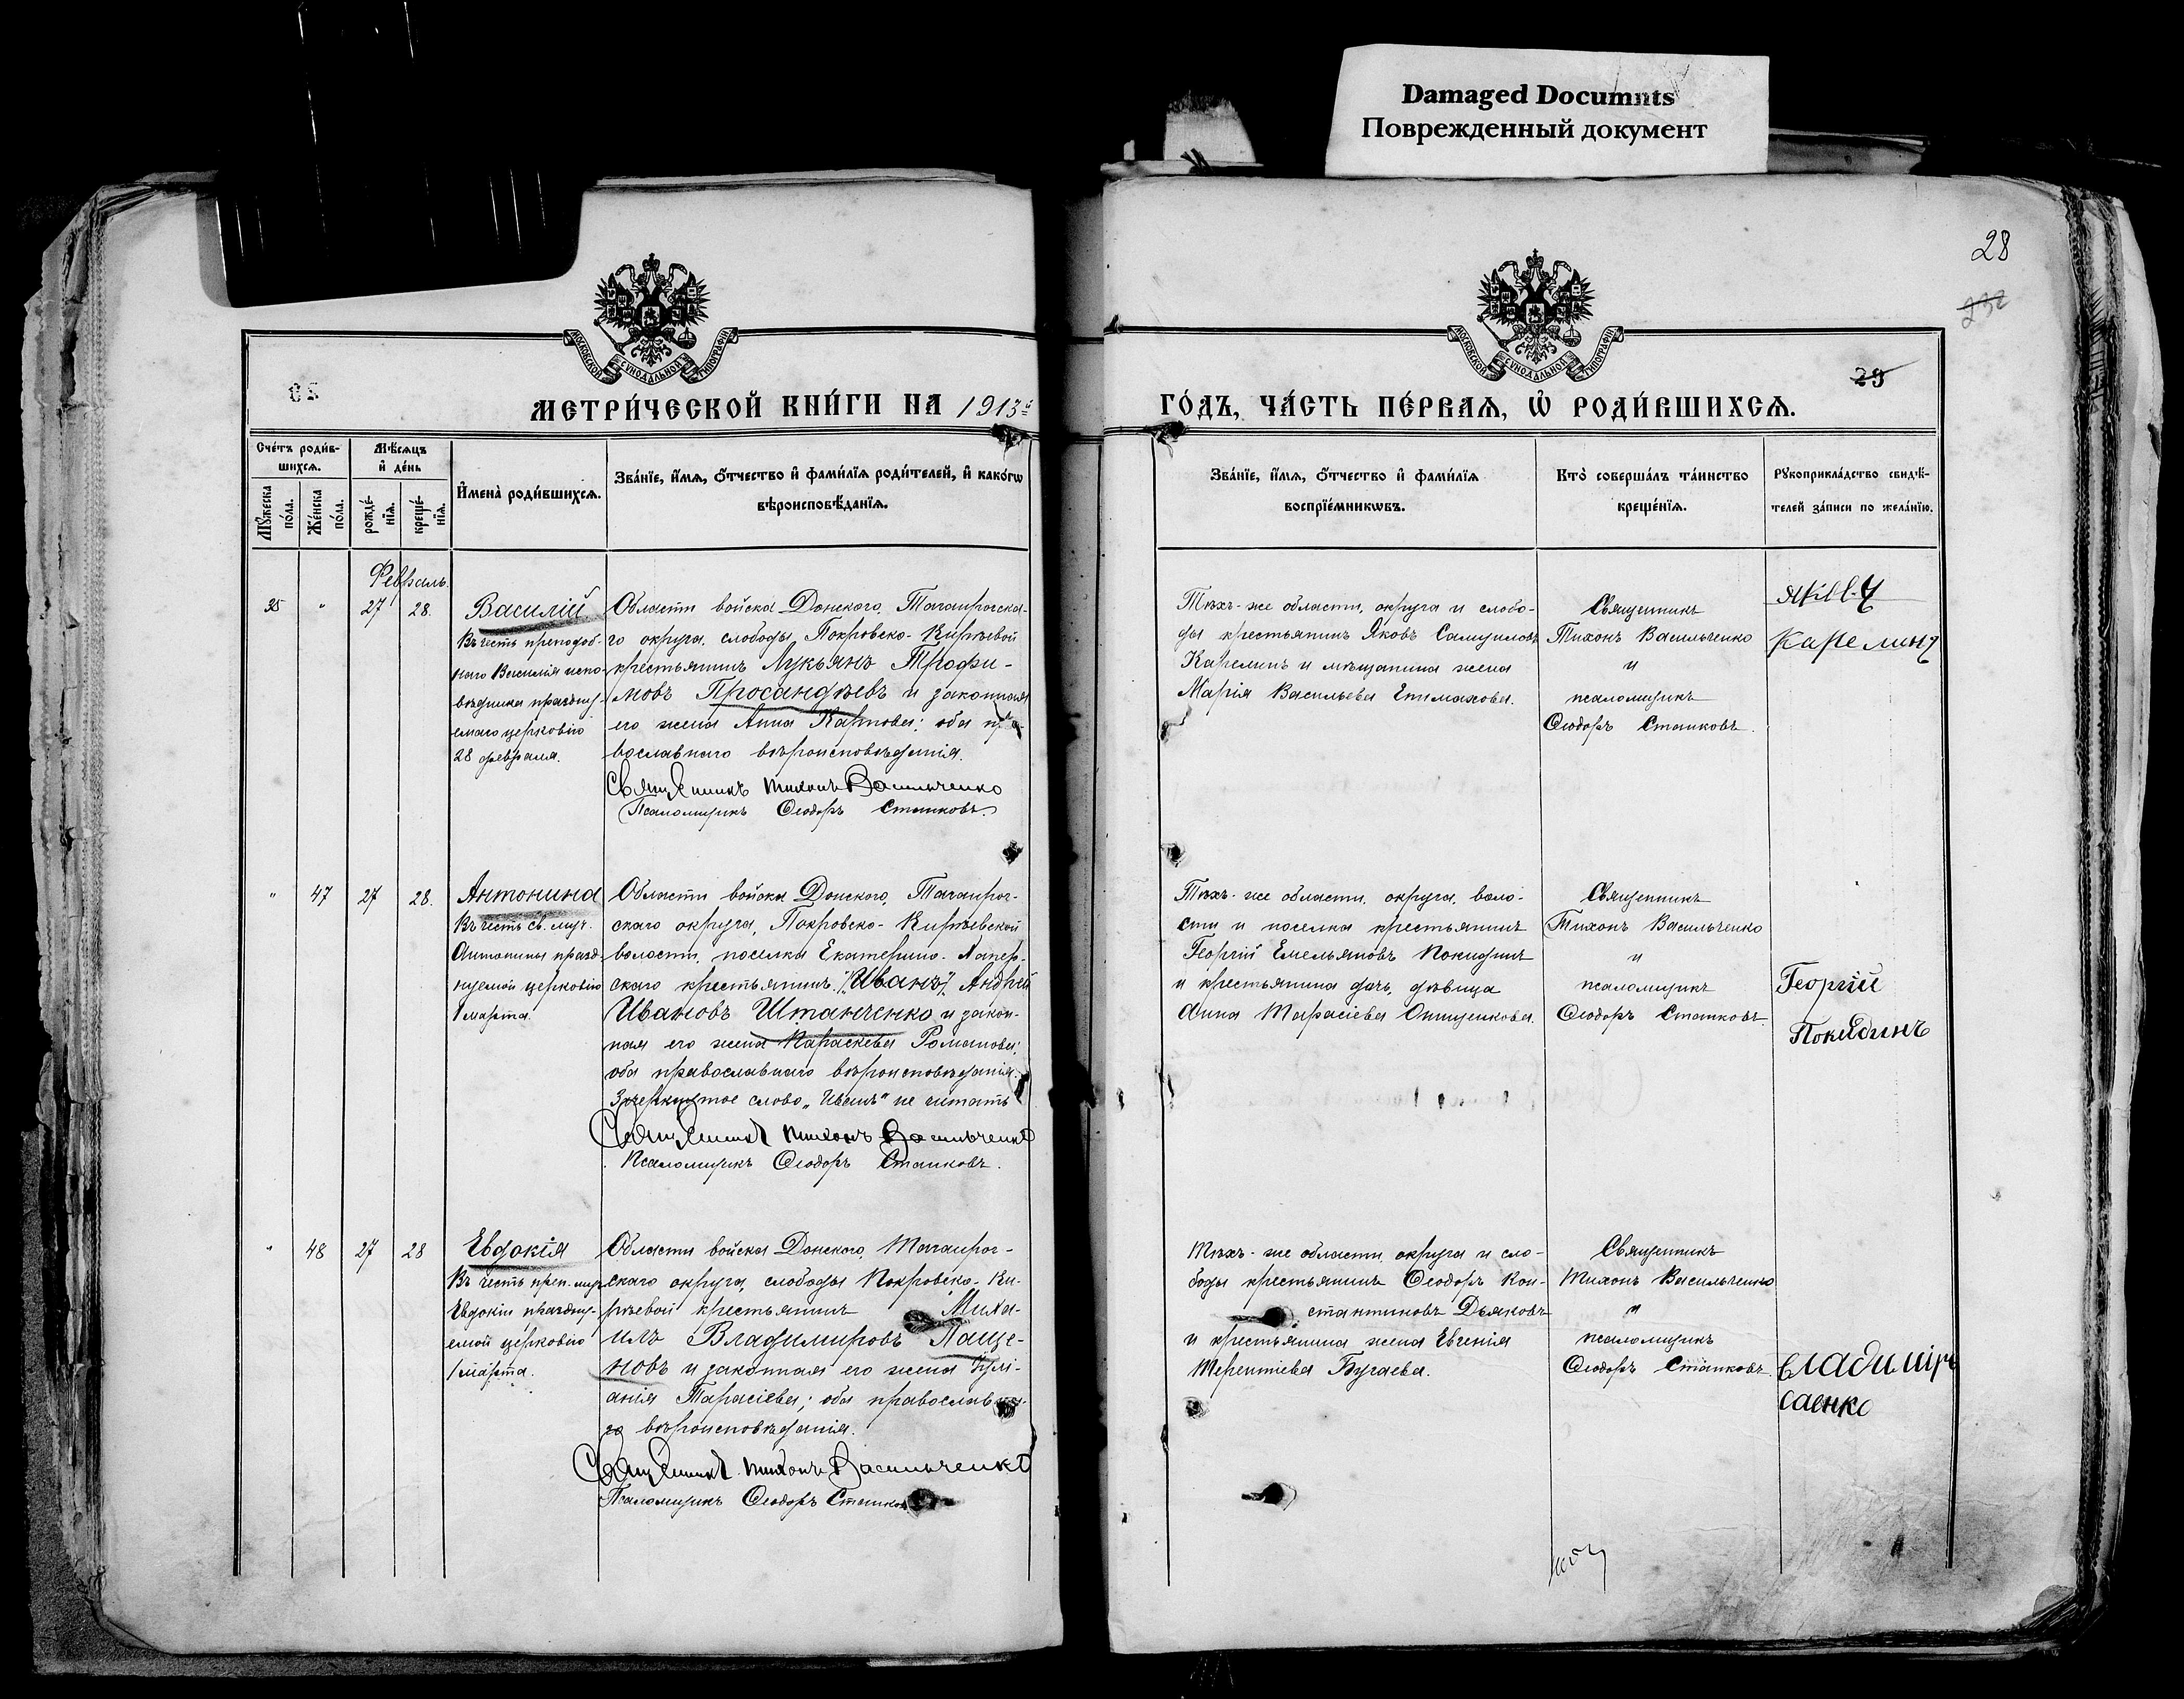 Damaged Documnts
Поврежденный документ
28
232
29
МОСКОВСКОЙ СѴНОДАЛЬНОЙ ТИПОГРАФІИ
МОСКОВСКОЙ СѴНОДАЛЬНОЙ ТИПОГРАФІИ
МЕТРИ́ЧЕСКОЙ КНИ́ГИ НА 1913 г.
ГО́ДЪ, ЧА́СТЬ ПЕ́РВАЯ, Ѽ РОДИ́ВШИХСЯ.
Сче́тъ роди́в-
шихся.
Мꙋ́жеска по́ла.
Же́нска по́ла.
Мѣ́сяцъ и҆ де́нь
рожде́-
нїя.
креще́-
нїя.
И҆мена̀ роди́вшихся.
Зва́нїе, и҆́мя, о҆́тчество и҆ фами́лїя роди́телей, и҆ како́гѡ
вѣроисповѣ́данїя.
Зва́нїе, и҆́мя, о҆́тчество и҆ фами́лїя
воспрїе́мникѡвъ.
Кто̀ соверша́лъ та́инство
креще́нїя.
Рꙋкоприкла́дство свидѣ́-
телей за́писи по жела́нїю.
Февраль.
35 " 27 28.
Василій
Въ честь преподоб-
наго Василія испо-
вѣдника праздну-
емаго церковію
28 февраля.
Области войска Донского, Таганрогска-
го округа, слободы Покровско-Кирѣевой
крестьянинъ Лукьянъ Трофи-
мовъ Просандѣевъ и законная
его жена Анна Карпова; оба пра-
вославнаго вѣроисповѣданія.
Священникъ Тихонъ Васильченко
Псаломщикъ Ѳеодоръ Станковъ.
Тѣхъ-же области, округа и слобо-
ды крестьянинъ Яковъ Самуиловъ
Карелинъ и мѣщанина жена
Марія Васильева Епимахова.
Священникъ
Тихонъ Васильченко
и
псаломщикъ
Ѳеодоръ Станковъ.
Карелинъ
" 47 27 28.
Антонина
Въ честь св. муч.
Антонины празд-
нуемой церковію
1 марта.
Области войска Донского, Таганрог-
скаго округа, Покровско-Кирѣевской
волости, поселка Екатерино-Хапер-
скаго крестьянинъ /"Иванъ"/ Андрей
Ивановъ Штанченко и закон-
ная его жена Параскева Романова;
оба православнаго вѣроисповѣданія.
Зачеркнутое слово „Иванъ" не читать
Священникъ Тихонъ Васильченко
Псаломщикъ Ѳеодоръ Станковъ.
Тѣхъ-же области, округа, воло-
сти и поселка крестьянинъ
Георгій Емельяновъ Покидинъ
и крестьянина дочь, дѣвица
Анна Тарасіева Онищенкова.
Священникъ
Тихонъ Васильченко
и
псаломщикъ
Ѳеодоръ Станковъ.
Георгій
Покидинъ
" 48 27 28
Евдокія
Въ честь преп. муч.
Евдокіи праздну-
емой церковію
1 марта.
Области войска Донского, Таганрог-
скаго округа, слободы Покровско-Ки-
рѣевой крестьянинъ Миха-
илъ Владимировъ Паще-
новъ и законная его жена Іулі-
анія Тарасіева; оба православна-
го вѣроисповѣданія.
Священникъ Тихонъ Васильченко
Псаломщикъ Ѳеодоръ Станковъ
Тѣхъ-же области, округа и сло-
боды крестьянинъ Ѳеодоръ Кон-
стантиновъ Дьяковъ
и крестьянина жена Евгенія
Терентіева Бугаева.
Священникъ
Тихонъ Васильченко
и
псаломщикъ
Ѳеодоръ Станковъ.
Владиміръ
Саенко